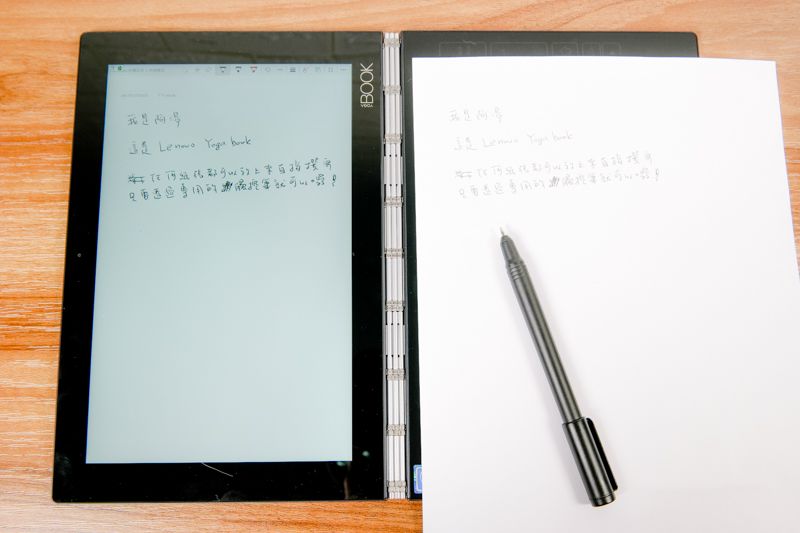 YOGA BOOK
我是阿湯
這是 Lenovo Yoga book
任何紙張都可以放上來直接撰寫
只要透過專用的觸控筆就可以囉!
我是阿湯
這是 Lenovo Yoga book
任何紙張都可以放上來直接撰寫
只要透過專用的觸控筆就可以囉!